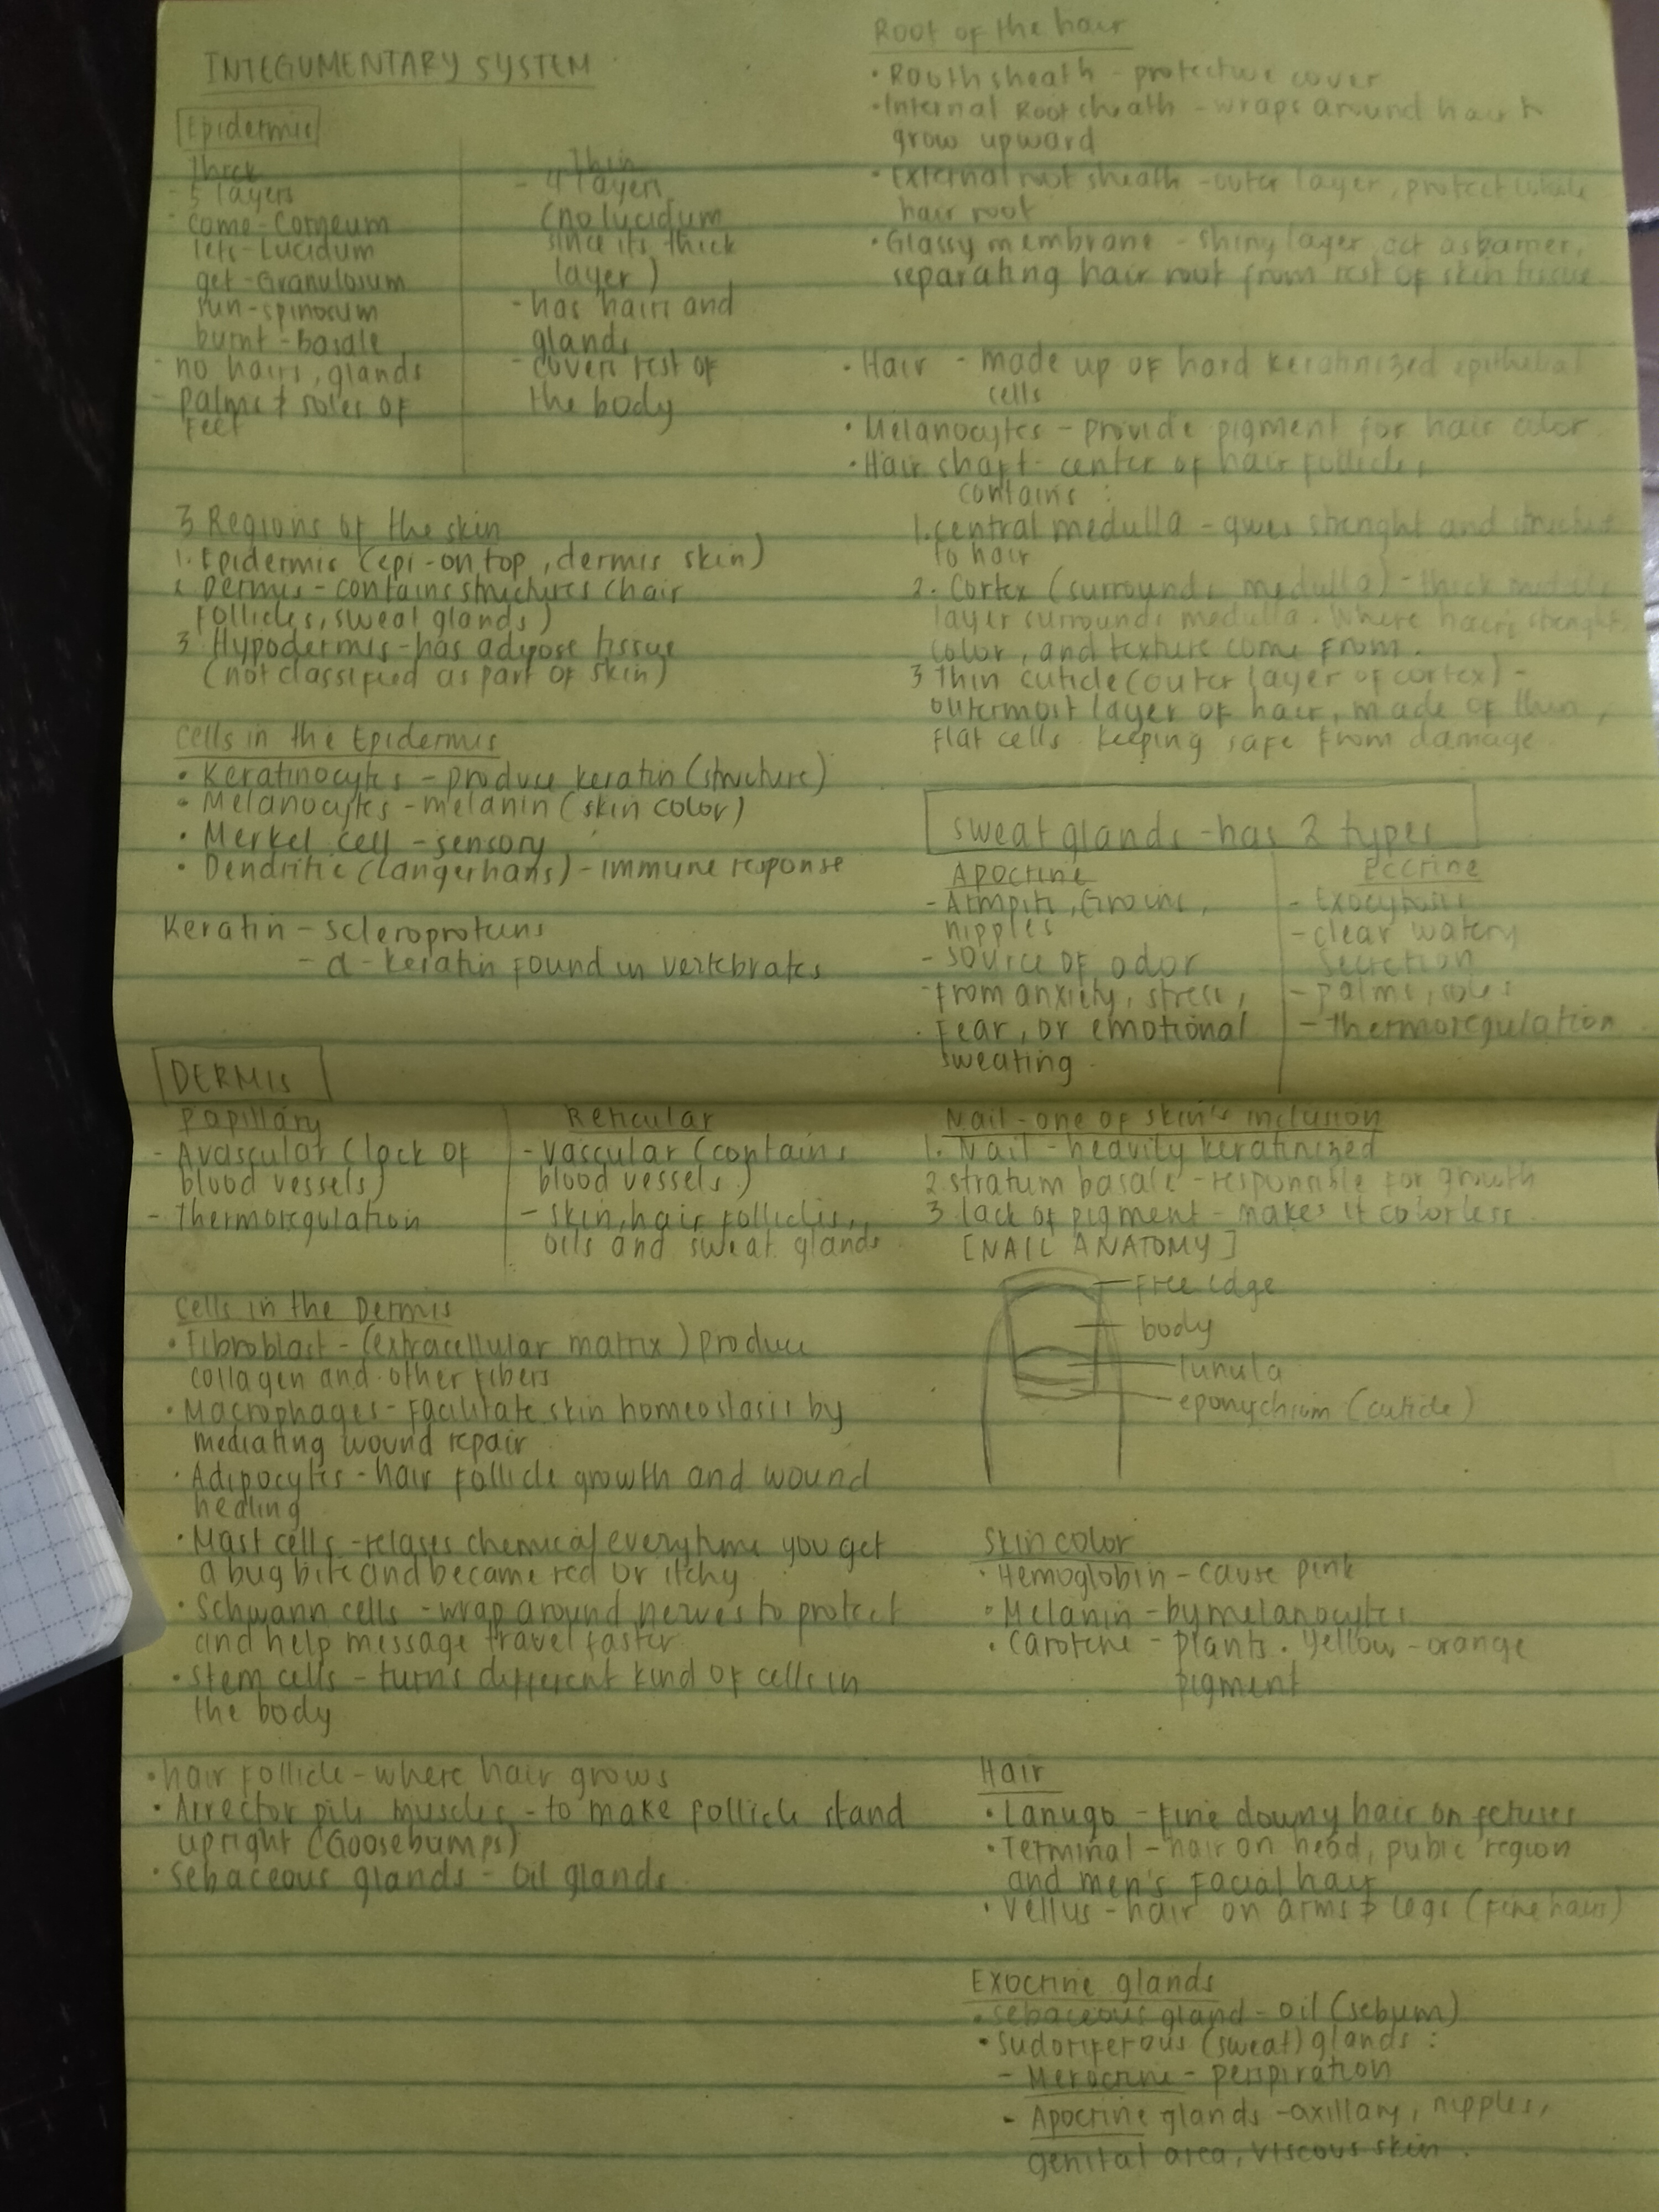 INTEGUMENTARY SYSTEM
Epidermis
Thick
- 5 layers
come - Corneum
lets - Lucidum
get - Granulosum
sun - spinosum
burnt - Basale
- no hairs, glands
- palms & soles of
feet
Thin
- 4 layers
(no lucidum
since its thick
layer)
- has hairs and
glands
- covers rest of
the body
3 Regions of the skin
1. Epidermis (epi - on top, dermis skin)
2. Dermis - contains structures (hair
follicles, sweat glands)
3. Hypodermis - has adipose tissue
(not classified as part of skin)
Cells in the Epidermis
• Keratinocytes - produce keratin (structure)
• Melanocytes - melanin (skin color)
• Merkel cell - sensory
• Dendritic (langerhans) - immune response
Keratin - scleroproteins
- α - keratin found in vertebrates
DERMIS
Papillary
- Avascular (lack of
blood vessels)
- Thermoregulation
Reticular
- Vascular (contains
blood vessels)
- skin, hair follicles,
oils and sweat glands
Cells in the Dermis
• Fibroblast - (extracellular matrix) produce
collagen and other fibers
• Macrophages - facilitate skin homeostasis by
mediating wound repair
• Adipocytes - hair follicle growth and wound
healing
• Mast cells - relases chemical everytime you get
a bug bite and became red or itchy
• Schwann cells - wrap around nerves to protect
and help message travel faster
• Stem cells - turns different kind of cells in
the body
• hair follicle - where hair grows
• Arrector pili muscles - to make follicle stand
upright (Goosebumps)
• Sebaceous glands - oil glands
Root of the hair
• Routh sheath - protective cover
• Internal Root sheath - wraps around hair &
grow upward
• External root sheath - outer layer, protect whole
hair root
• Glassy membrane - shiny layer, act as barrier,
separating hair root from rest of skin tissue
• Hair - made up of hard keratinized epithelial
cells
• Melanocytes - provide pigment for hair color
• Hair shaft - center of hair follicle,
contains :
1. central medulla - gives strenght and structure
to hair
2. Cortex (surrounds medulla) - thick middle
layer surrounds medulla. Where hair's strenght,
color, and texture come from.
3 Thin cuticle (outer layer of cortex) -
outermost layer of hair, made of thin,
flat cells. Keeping safe from damage.
sweat glands - has 2 types
Apocrine
- Armpits, Groins,
nipples
- source of odor
- from anxiety, stress,
fear, or emotional
sweating.
Eccrine
- Exocytosis
- clear watery
secretion
- palms, soles
- thermoregulation
Nail - one of skin's inclusion
1. Nail - heavity keratinized
2. stratum basale - responsible for growth
3. lack of pigment - makes it colorless
[NAIL ANATOMY]
free edge
body
lunula
eponychium (cuticle)
Skin color
• Hemoglobin - cause pink
• Melanin - by melanocytes
• Carotene - plants. Yellow - orange
pigment
Hair
• Lanugo - fine downy hair on fetuses
• Terminal - hair on head, pubic region
and men's facial hair
• Vellus - hair on arms & legs (fine hairs)
Exocrine glands
• Sebaceous gland - oil (sebum)
• Sudoriferous (sweat) glands :
- Merocrine - perspiration
- Apocrine glands - axillary, nipples,
genital area, viscous skin.